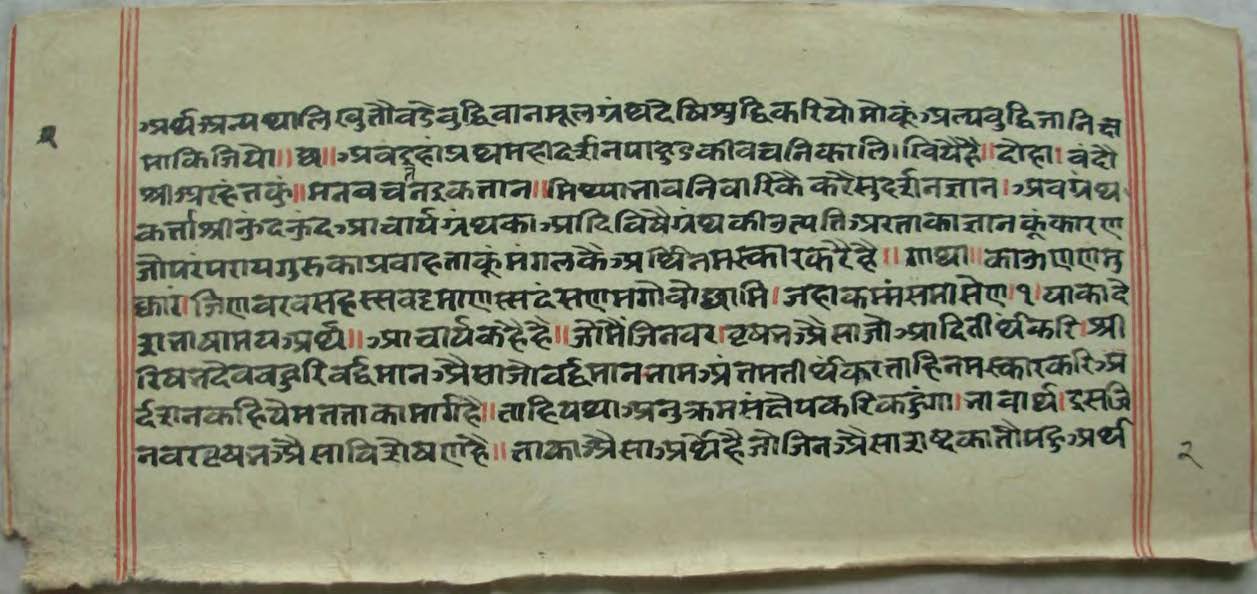 अर्थ अन्यथा लिखु तौ वडे वुद्धिवान मूलग्रंथ देषि शुद्धि करियो मोकूं अल्पवुद्धि जानि क्ष
माकिजियो॥छ॥ अव इहा प्रथम ही दर्शनपाहुडकी वचनिका लिखियै है॥दोहा। वंदौ
श्री अरहंतकुं॥मनवचतन इकतान॥मिथ्याभाव निवारिकै करै सुदर्शन ज्ञान। अव ग्रंथ
कर्त्ता श्री कुंदकुंद आचार्य ग्रंथका आदिविषै ग्रंथकी उत्पति अर ताका ज्ञानकूं कारण
जो परंपराय गुरुका प्रवाह ताकूं मंगलकै अर्थि नमस्कार करै है॥गाथा॥काऊण णमु
क्कारं।जिणवरवसहस्स वड्ढमाणस्स दंसणमग्गं वोछामि।जहाकम्मं समासेण।१। याका दे
शभाषामय अर्थ॥ आचार्य कहै है॥जो मैं जिनवर।वृषभ अैसा जो आदि तीर्थंकरि।श्री
रिषभदेव वहुरि वर्द्धमान अैसा जो वर्द्धमान नाम अंतम तीर्थंकर ताहि नमस्कार करि अर
र्दशन कहिये मत ताका मार्ग है॥ताहि यथा अनुक्रम संक्षेप करि कहुंगा।भावार्थ।इस जि
नवर वृषभ अैसा विशेषण है॥ताका अैसा अर्थ है जो जिन अैसा शब्द का तौ यहु अर्थ
२